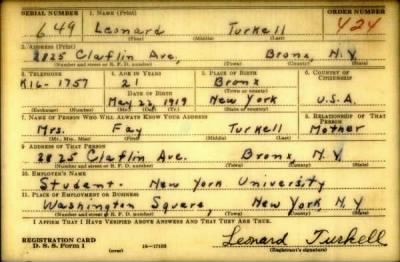 SERIAL NUMBER 1. NAME (Print) ORDER NUMBER
649 Leonard Turkell 424
(First) (Middle) (Last)
2. ADDRESS (Print)
2825 Claflin Ave, Bronx, N.Y
(Number and street or R. F. D. number) (Town) (County) (State)
3. TELEPHONE 4. AGE IN YEARS 5. PLACE OF BIRTH 6. COUNTRY OF CITIZENSHIP
KI6-1757 21 Bronx
DATE OF BIRTH
May 22, 1919 New York U.S.A.
(Exchange) (Number) (Mo.) (Day) (Yr.) (State or country)
7. NAME OF PERSON WHO WILL ALWAYS KNOW YOUR ADDRESS 8. RELATIONSHIP OF THAT PERSON
Mrs. Fay Turkell Mother
(Mr., Mrs., Miss) (First) (Middle) (Last)
9. ADDRESS OF THAT PERSON
2825 Claflin Ave. Bronx, N.Y
(Number and street or R. F. D. number) (Town) (County) (State)
10. EMPLOYER'S NAME
Student - New York University
11. PLACE OF EMPLOYMENT OR BUSINESS
Washington Square, New York, N.Y
(Number and street or R. F. D. number) (Town) (County) (State)
I AFFIRM THAT I HAVE VERIFIED ABOVE ANSWERS AND THAT THEY ARE TRUE.
REGISTRATION CARD
D. S. S. Form 1 (over) 16-17105 Leonard Turkell
(Registrant's signature)